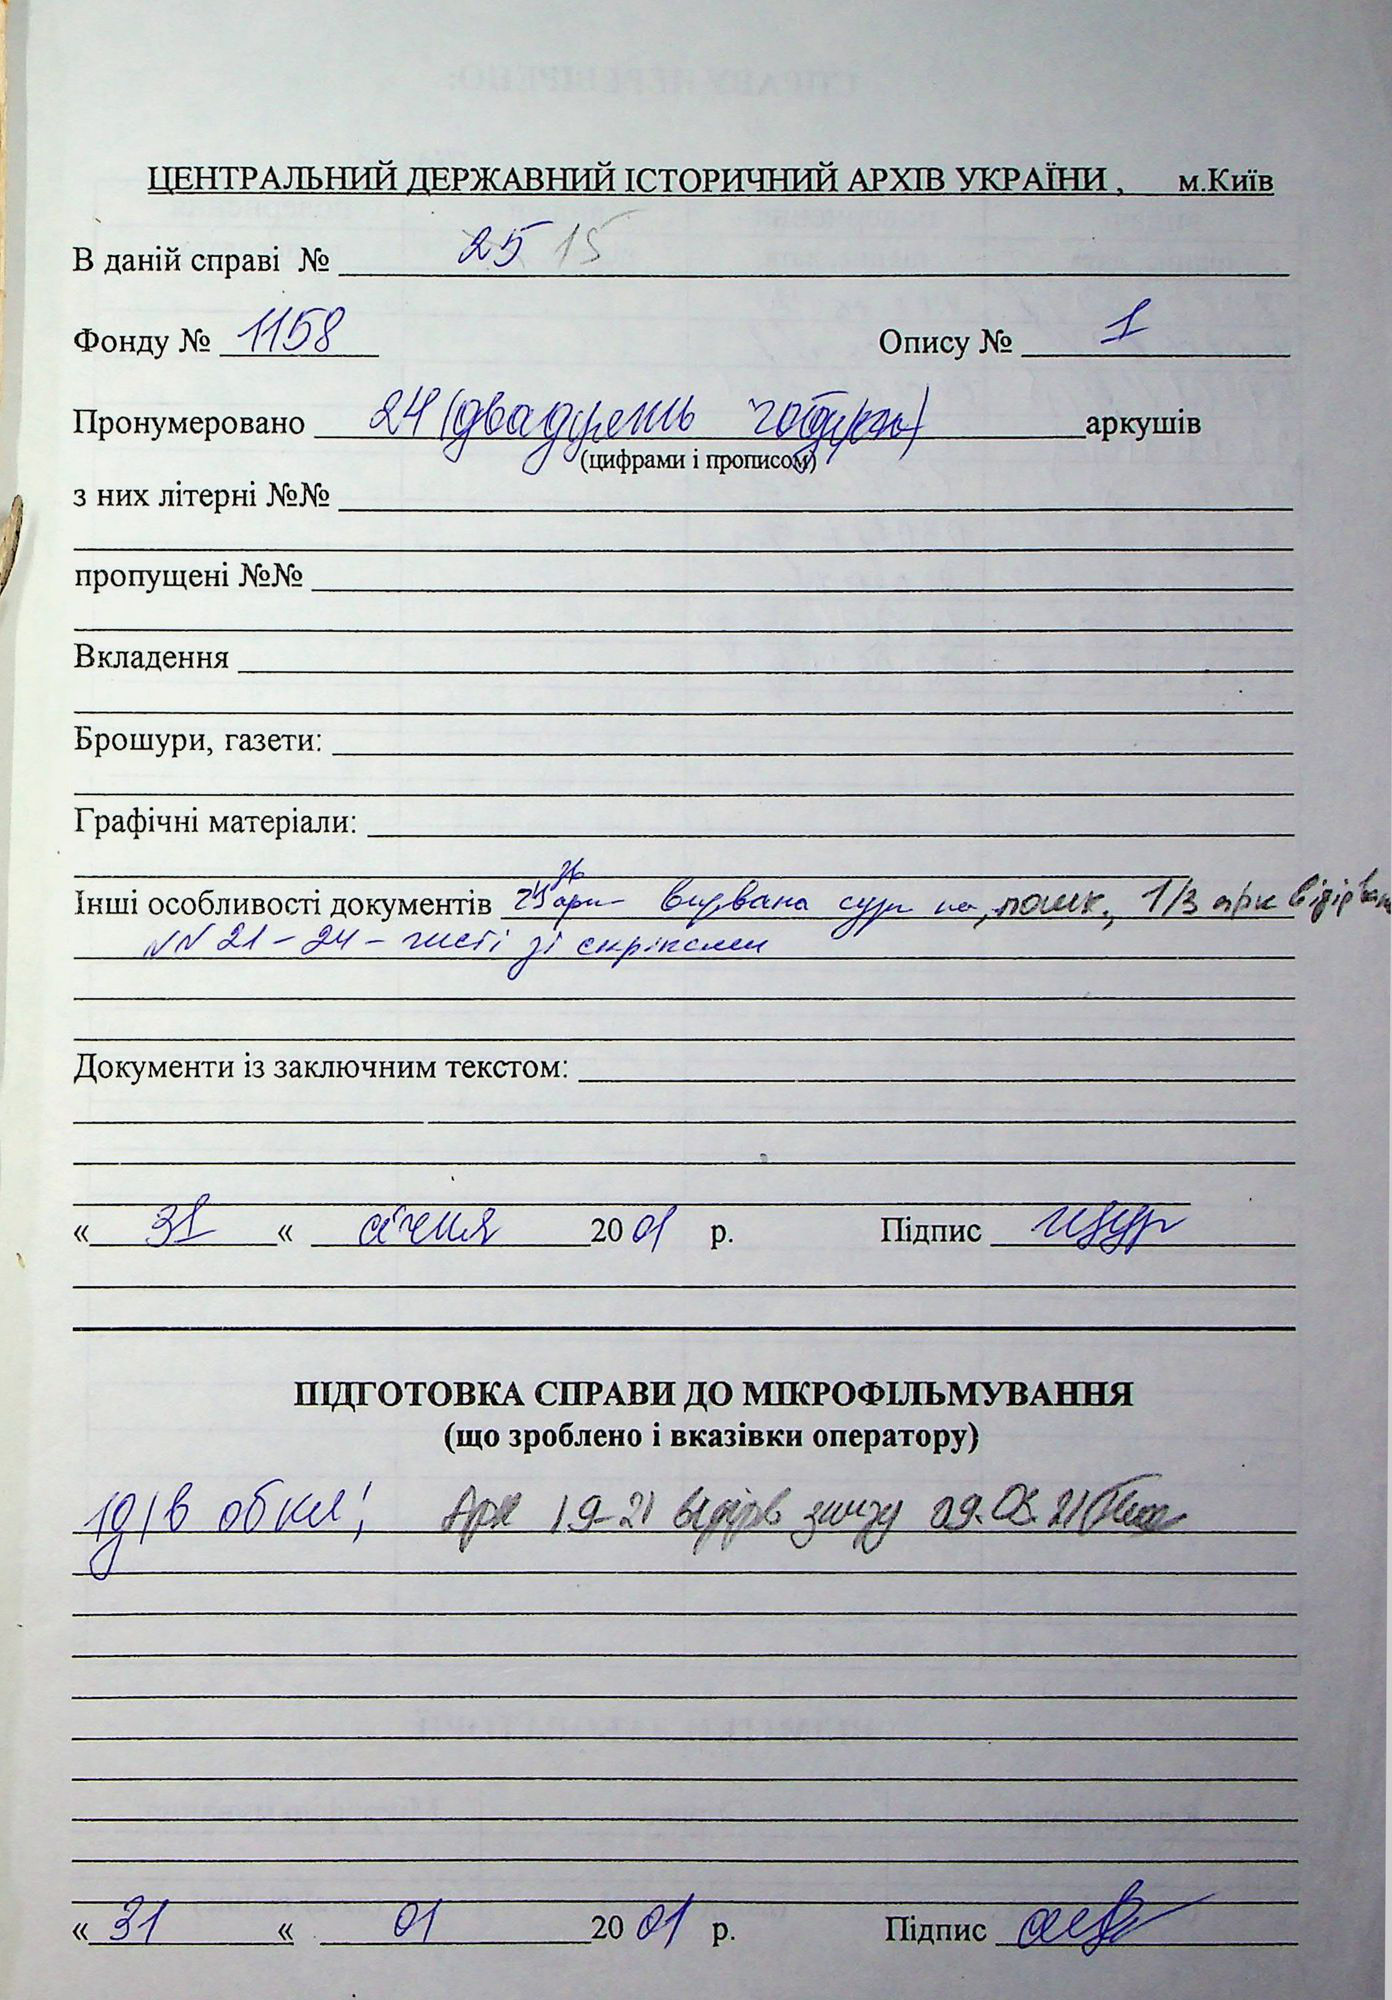 ЦЕНТРАЛЬНИЙ ДЕРЖАВНИЙ ІСТОРИЧНИЙ АРХІВ УКРАЇНИ , м.Київ
В даній справі № 25 15
Фонду № 1158 Опису № 1
Пронумеровано 24 (двадцять чотири) аркушів
(цифрами і прописом)
з них літерні №№
пропущені №№
Вкладення
Брошури, газети:
Графічні матеріали:
Інші особливості документів 1/3 арк відірван
NN 21-24 - чисті зі скріпами
Документи із заключним текстом:
« 31 « січня 20 01 р. Підпис
ПІДГОТОВКА СПРАВИ ДО МІКРОФІЛЬМУВАННЯ
(що зроблено і вказівки оператору)
Арк 19-21 відірв знизу 09.03.21
« 31 « 01 20 01 р. Підпис